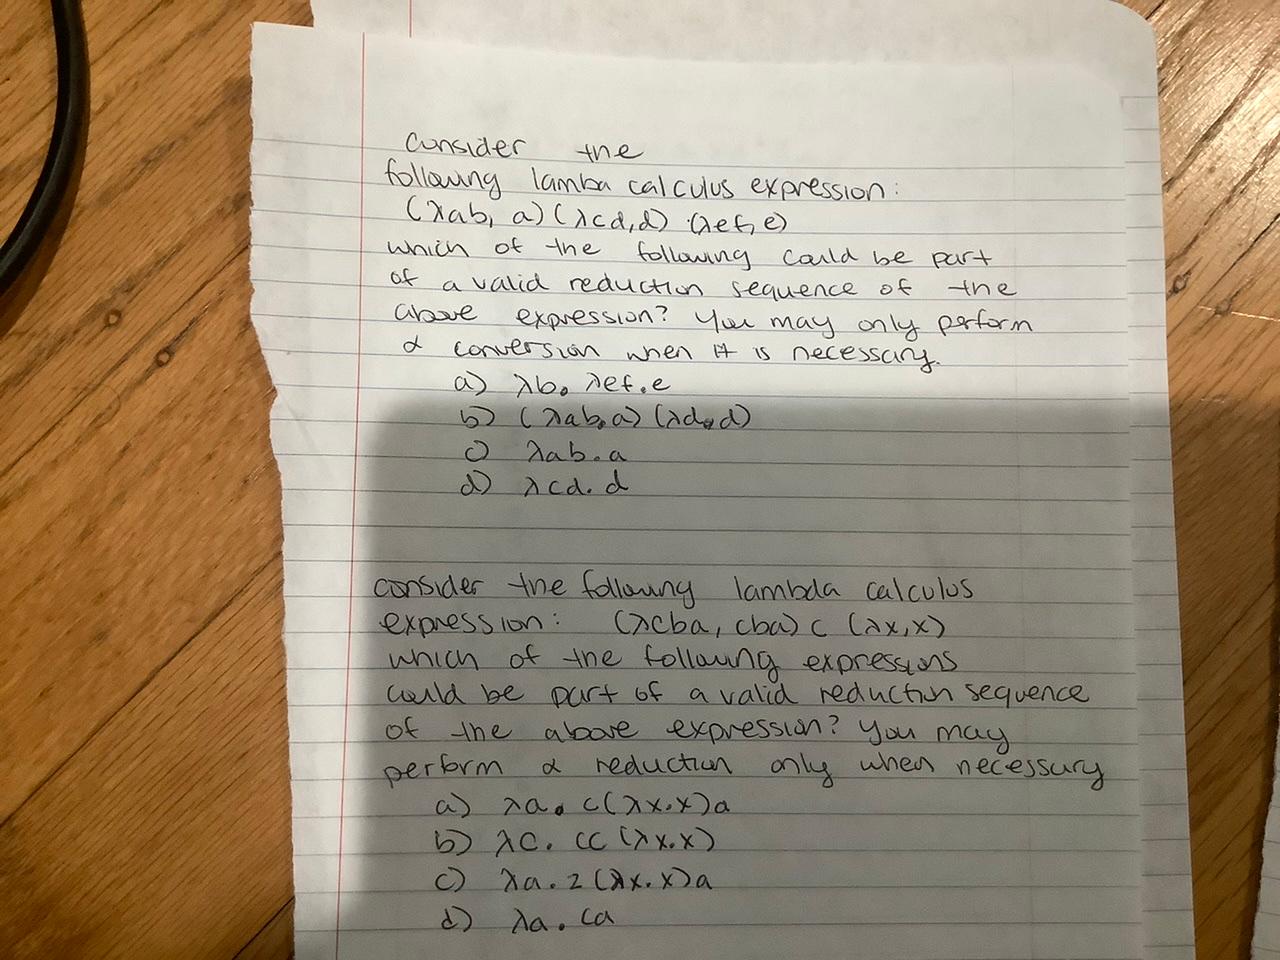 Consider the
following lamba calculus expression:
(λab, a) (λcd, d) (λef, e)
which of the following could be part
of a valid reduction sequence of the
above expression? You may only perform
α conversion when it is necessary.
a) λb. λef.e
b) (λab.a) (λd.d)
c) λab.a
d) λcd.d
consider the following lambda calculus
expression: (λcba, cba) c (λx,x)
which of the following expressions
could be part of a valid reduction sequence
of the above expression? You may
perform α reduction only when necessary
a) λa. c(λx.x)a
b) λc. cc (λx.x)
c) λa.z(λx.x)a
d) λa.ca